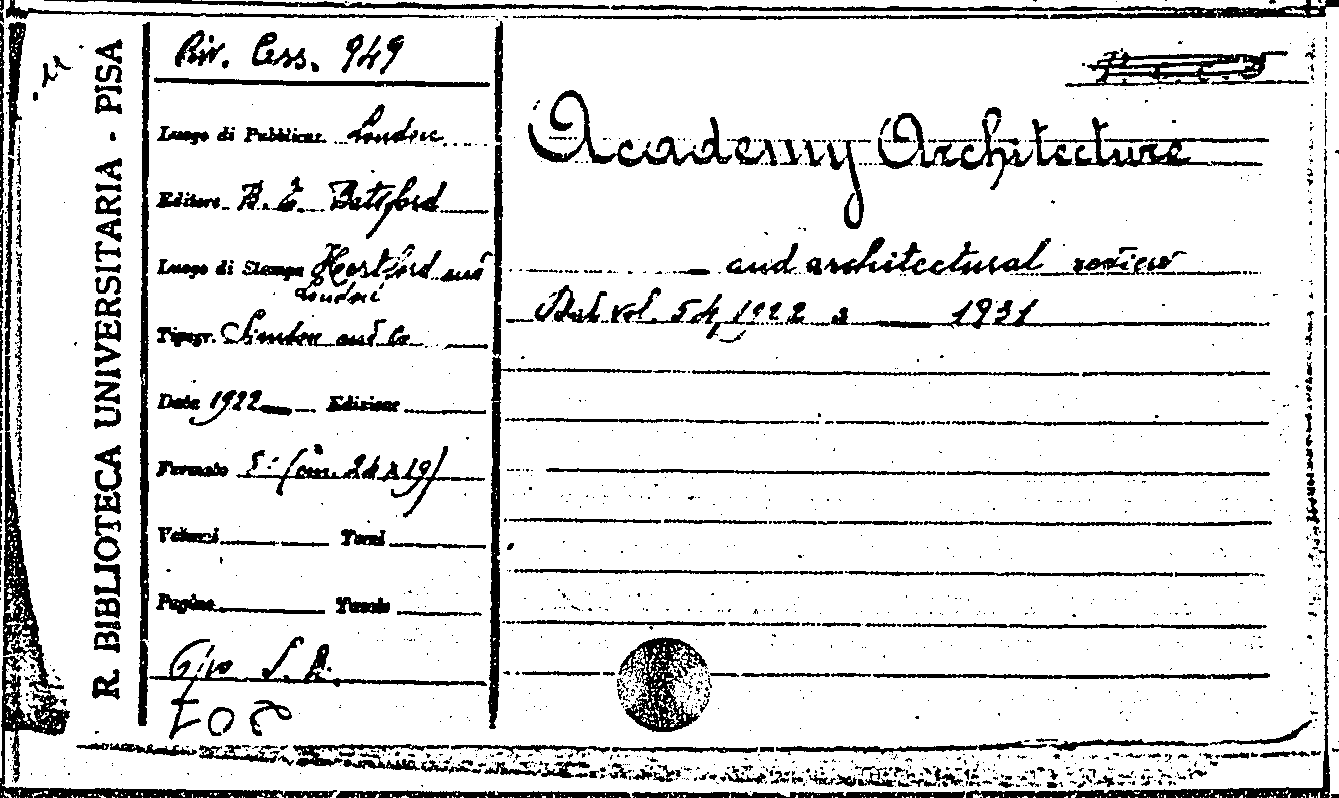 R. BIBLIOTECA UNIVERSITARIA - PISA
Riv. Cess. 949
Luogo di Pubblicaz. London
Editore B. T. Batsford
Luogo di Stampa Hertford and
London
Tipogr. and Co
Data 1922 Edizione
Formato (cm. 24 x 19)
Volumi Tomi
Pagine Tavole
Academy Architecture
and architectural review
Dal vol. 54, 1922 a 1931